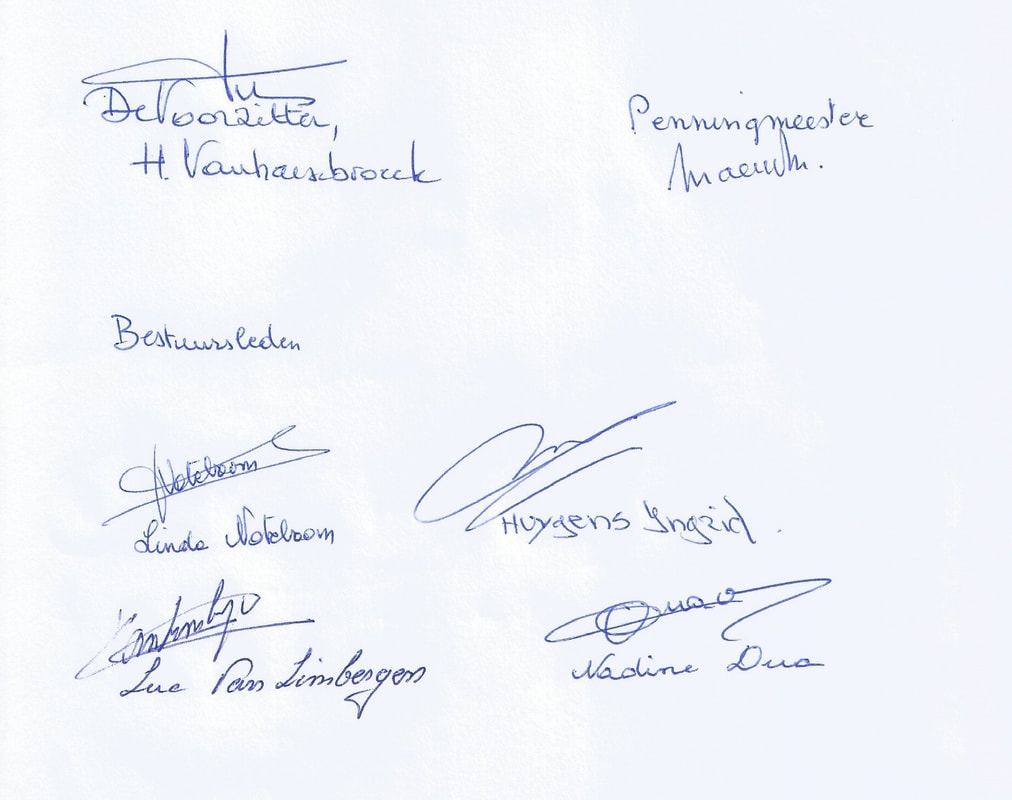 De Voorzitter,
H. Vanhaesebrouck
Penningmeester
Bestuursleden
Noteboom
Linda Noteboom
Huygens Ingrid.
Luc Van Limbergen
Nadine Dua